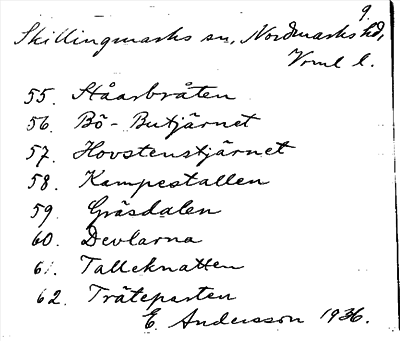 9.
Skillingmarks sn, Nordmarks hd,
Vrml l.
55. Ståarbråten
56. Bö-Butjärnet
57. Hovstenstjärnet
58. Kampestallen
59. Gräsdalen
60. Devlarna
61. Talleknatten
62. Träteparten
E. Andersson 1936.